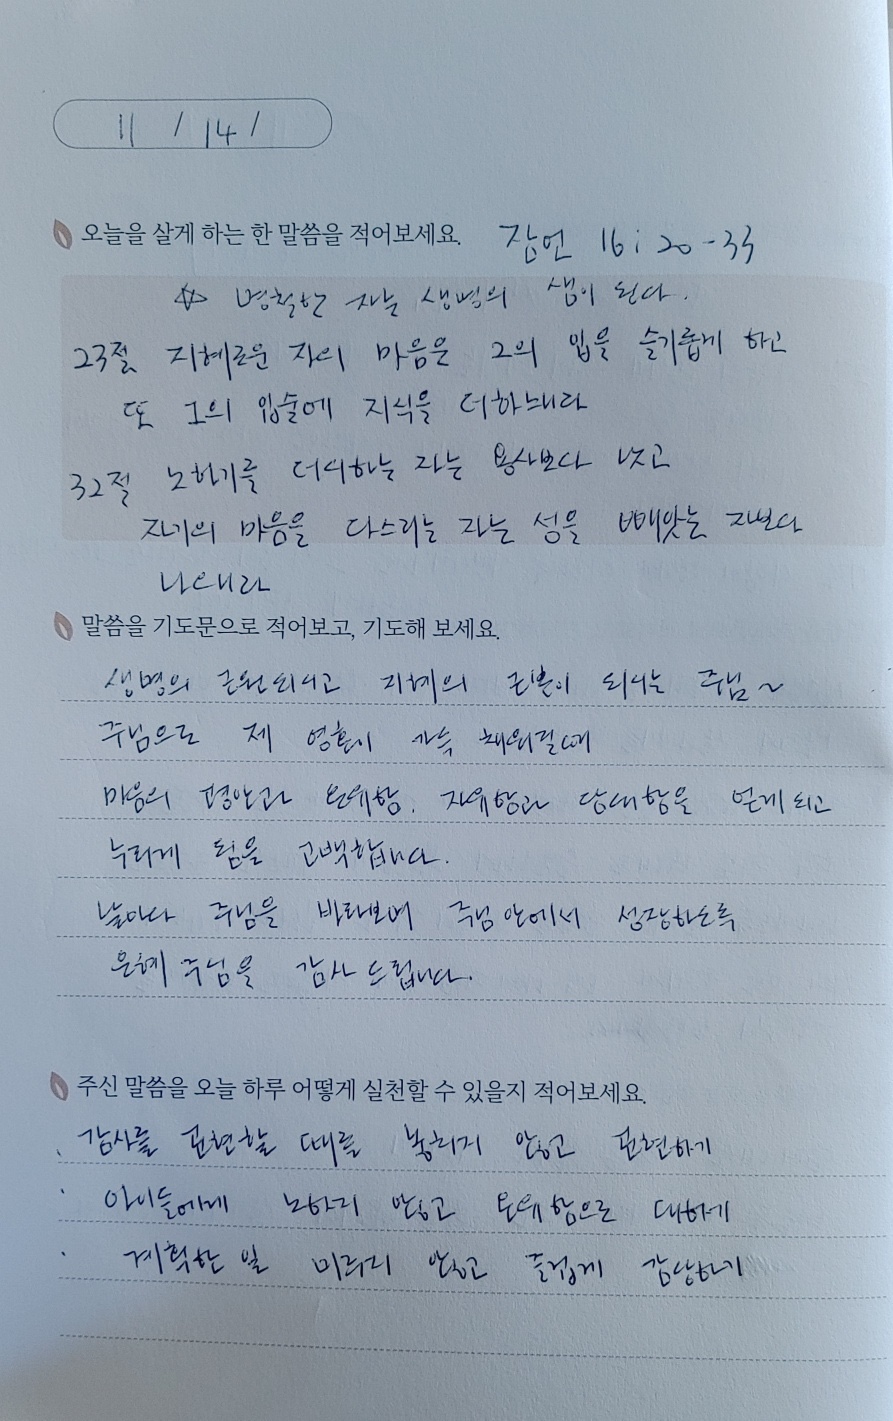 11 / 14 /
오늘을 살게 하는 한 말씀을 적어보세요. 잠언 16 : 20 - 33
☆ 명철한 자는 생명의 샘이 된다.
23절 지혜로운 자의 마음은 그의 입을 슬기롭게 하고
또 그의 입술에 지식을 더하느니라
32절 노하기를 더디하는 자는 용사보다 낫고
자기의 마음을 다스리는 자는 성을 빼앗는 자보다
나으니라
말씀을 기도문으로 적어보고, 기도해 보세요.
생명의 근원되시고 지혜의 근본이 되시는 주님~
주님으로 제 영혼이 가득 채워질때
마음의 평안과 온유함. 자유함과 담대함을 얻게되고
누리게 됨을 고백합니다.
날마다 주님을 바라보며 주님 안에서 성장하도록
은혜 주님을 감사드립니다.
주신 말씀을 오늘 하루 어떻게 실천할 수 있을지 적어보세요.
· 감사를 표현할 때를 놓치지 않고 표현하기
· 아이들에게 노하지 않고 온유함으로 대하게
· 계획한 일 미루지 않고 즐겁게 감당하기